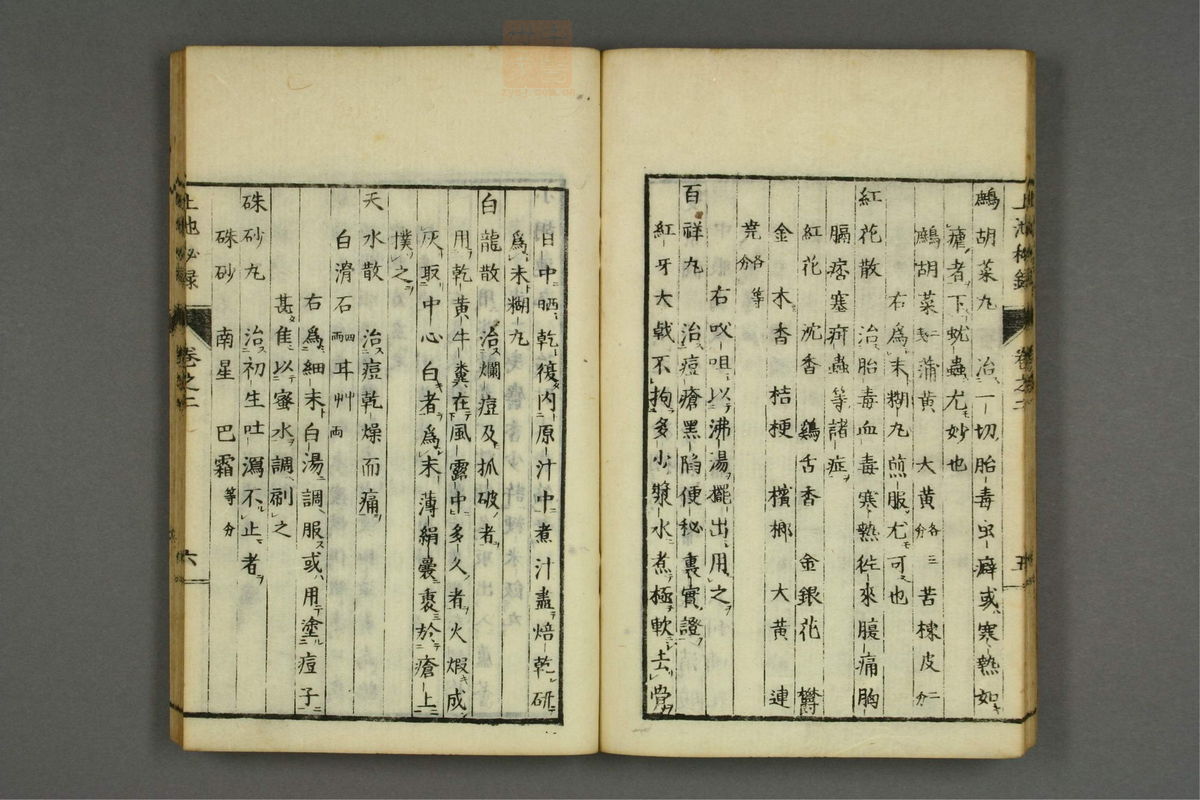 鷓胡菜丸 治一切胎毒虫癖或寒熱如
瘧者下蚘蟲尤妙也
鷓胡菜 蒲黄 大黄各三分 苦楝皮二分
右爲末糊丸煎服尤可也
紅花散 治胎毒血毒寒熱徃來腹痛胸
膈痞塞疳蟲等諸症
紅花 沈香 鷄舌香 金銀花 欝
金 木香 桔梗 檳榔 大黄 連
堯各等分
右㕮咀以沸湯擺出用之
百祥丸 治痘瘡黑陷便秘裏實證
紅牙大戟不拘多少漿水煮極軟去骨
上池秘録 卷之二 五
日中晒乾復内原汁中煮汁盡焙乾研
爲末糊丸
白龍散 治爛痘及抓破者
用乾黄牛糞在風露中多久者火煆成
灰取中心白者爲末薄絹囊裹於瘡上
撲之
天水散 治痘乾燥而痛
白滑石四兩 耳艸一兩
右爲細末白湯調服或用塗痘子
甚隹以蜜水調刷之
硃砂丸 治初生吐瀉不止者
硃砂 南星 巴霜等分
上池秘録 卷之二 六